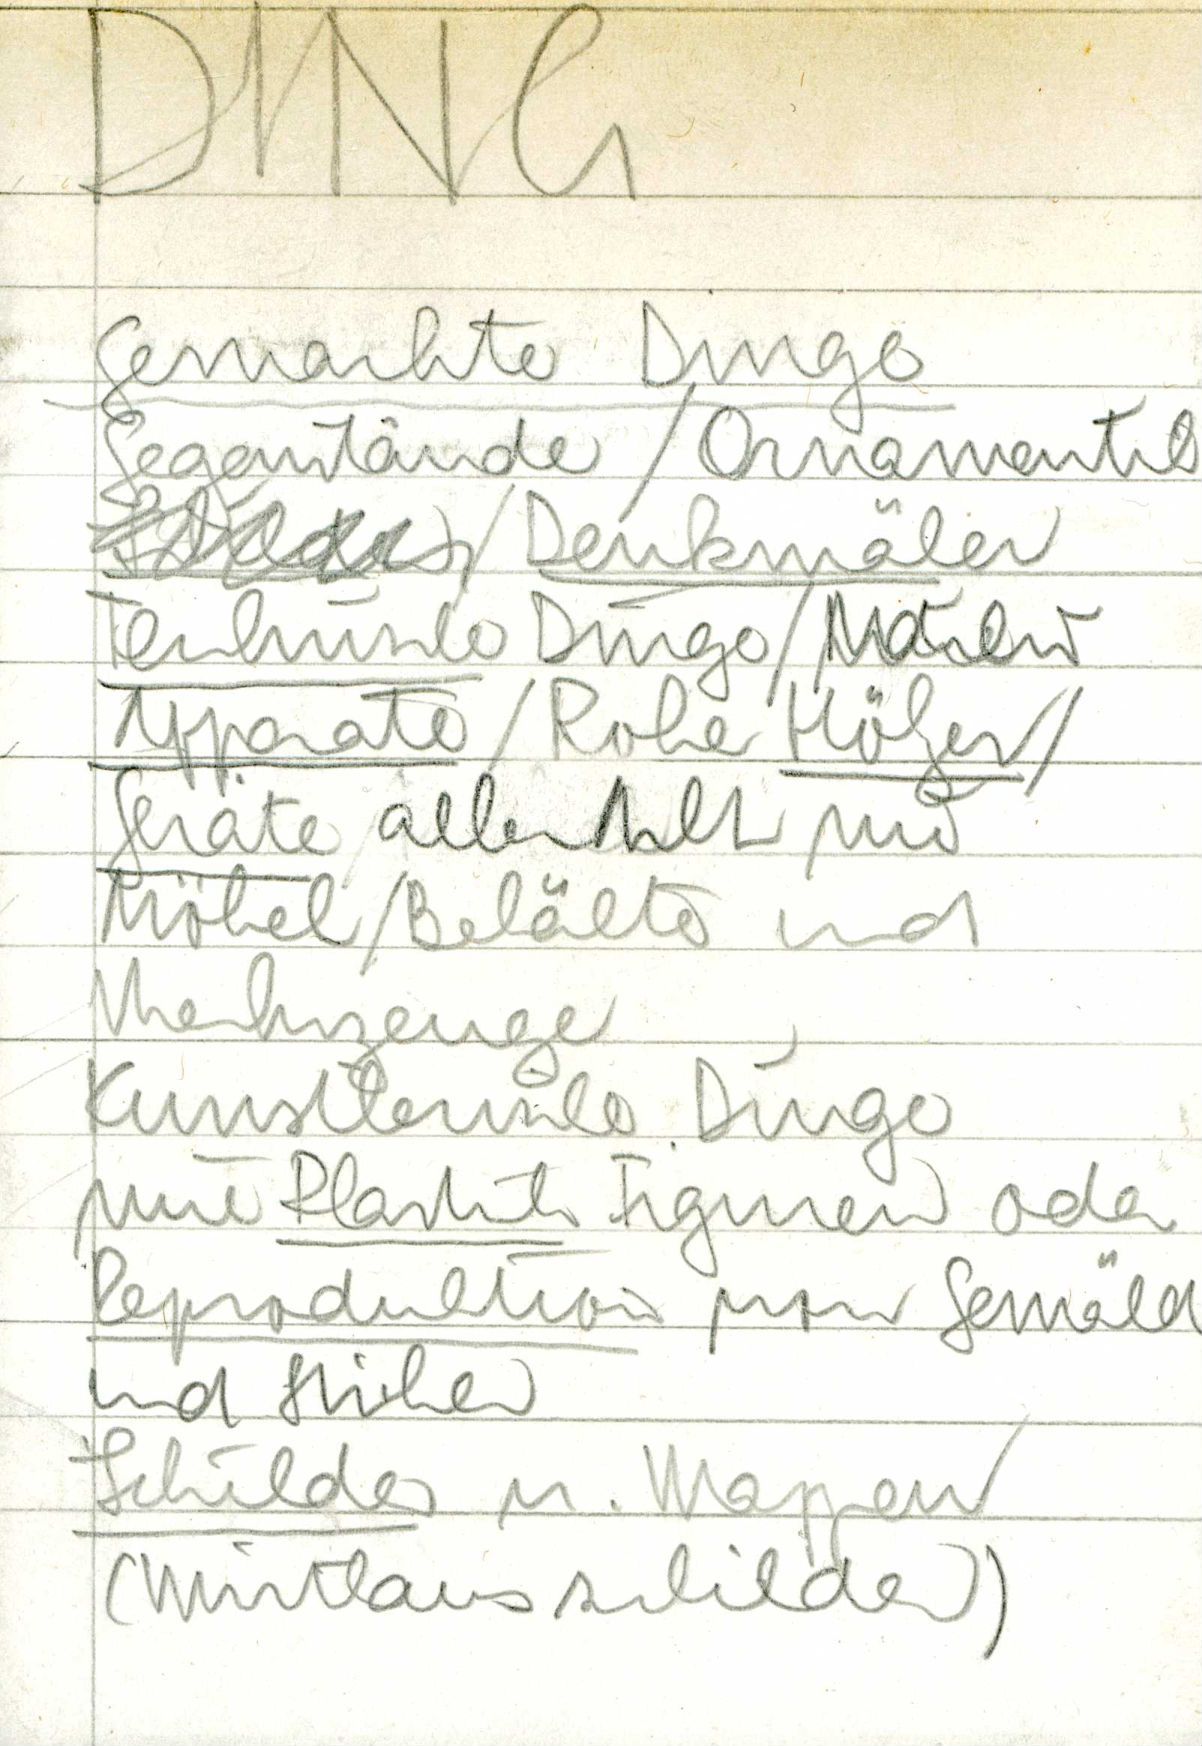 DING
Gemachte Dinge
Gegenstände / Ornamente
/ Denkmäler
Technische Dinge /
Apparate / Rohe Hölzer /
Geräte aller Art und
Möbel / Behälte und
Werkzeuge
Künstlerische Dinge
wie Plastik Figuren oder
Reproduktion von Gemäld
und Stichen
Schilder u. Wappen
(Wirtshausschilder)